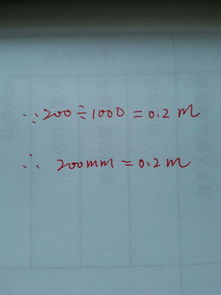 ∵200÷1000=0.2m
∴ 200mm=0.2m